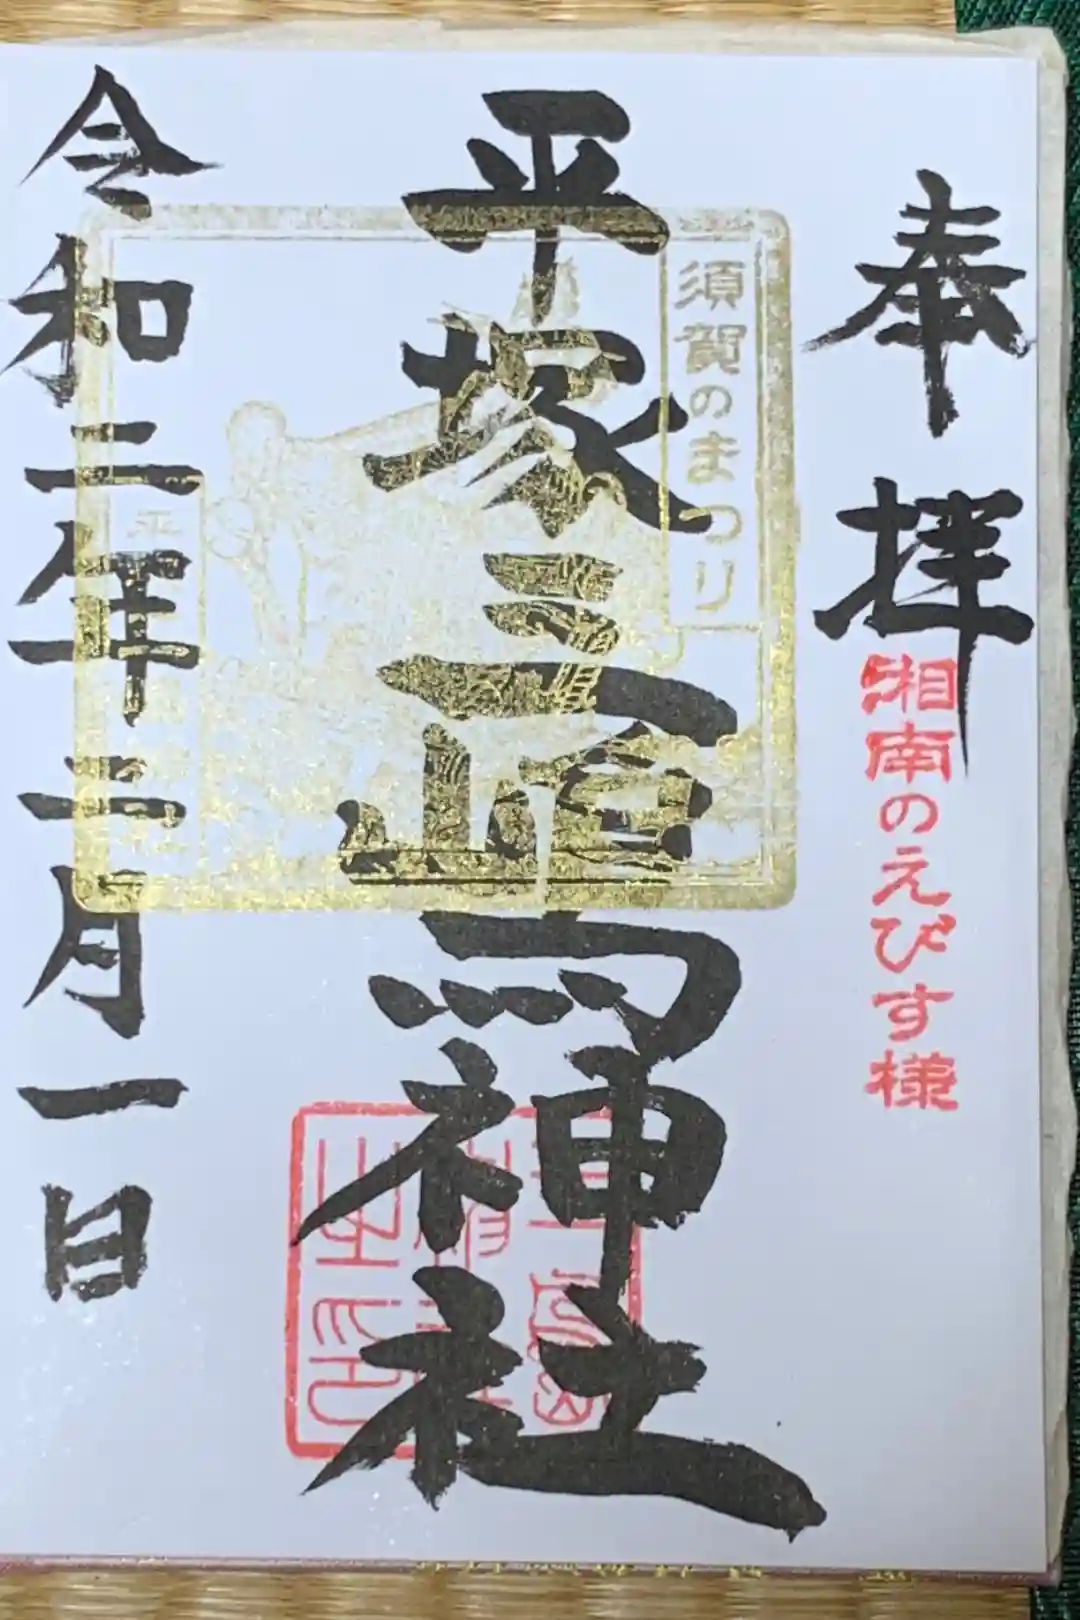 奉拝
湘南のえびす様
須賀のまつり
平塚三嶋神社
令和二年三月一日